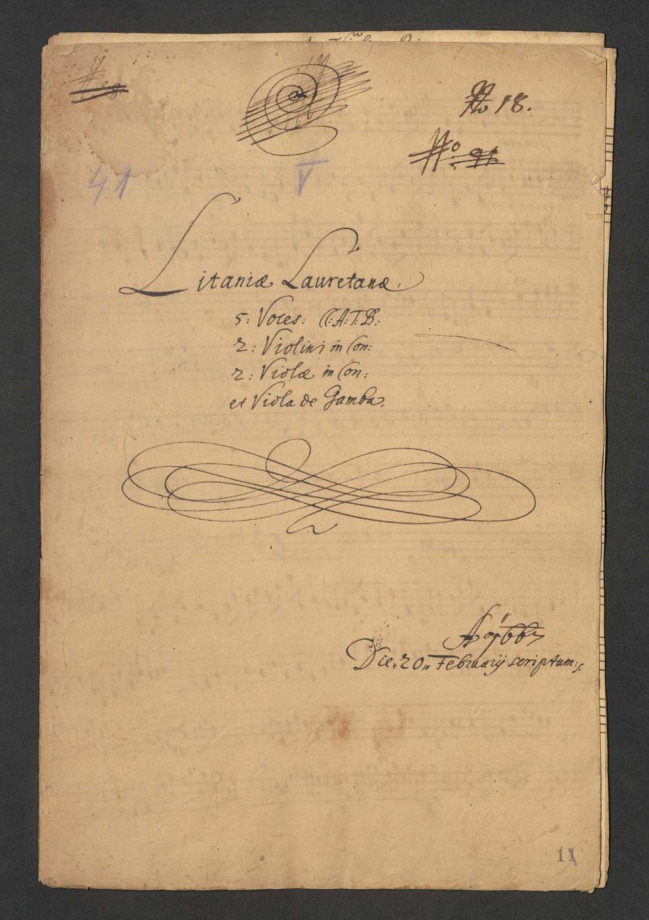 No 18.
No. 91
41 V
Litaniæ Lauretanæ.
5: Voces: CC:A:T:B:
2: Violini in Con:
2: Violæ in Con:
et Viola de Gamba.
Die 20 Februarij scriptum:
11